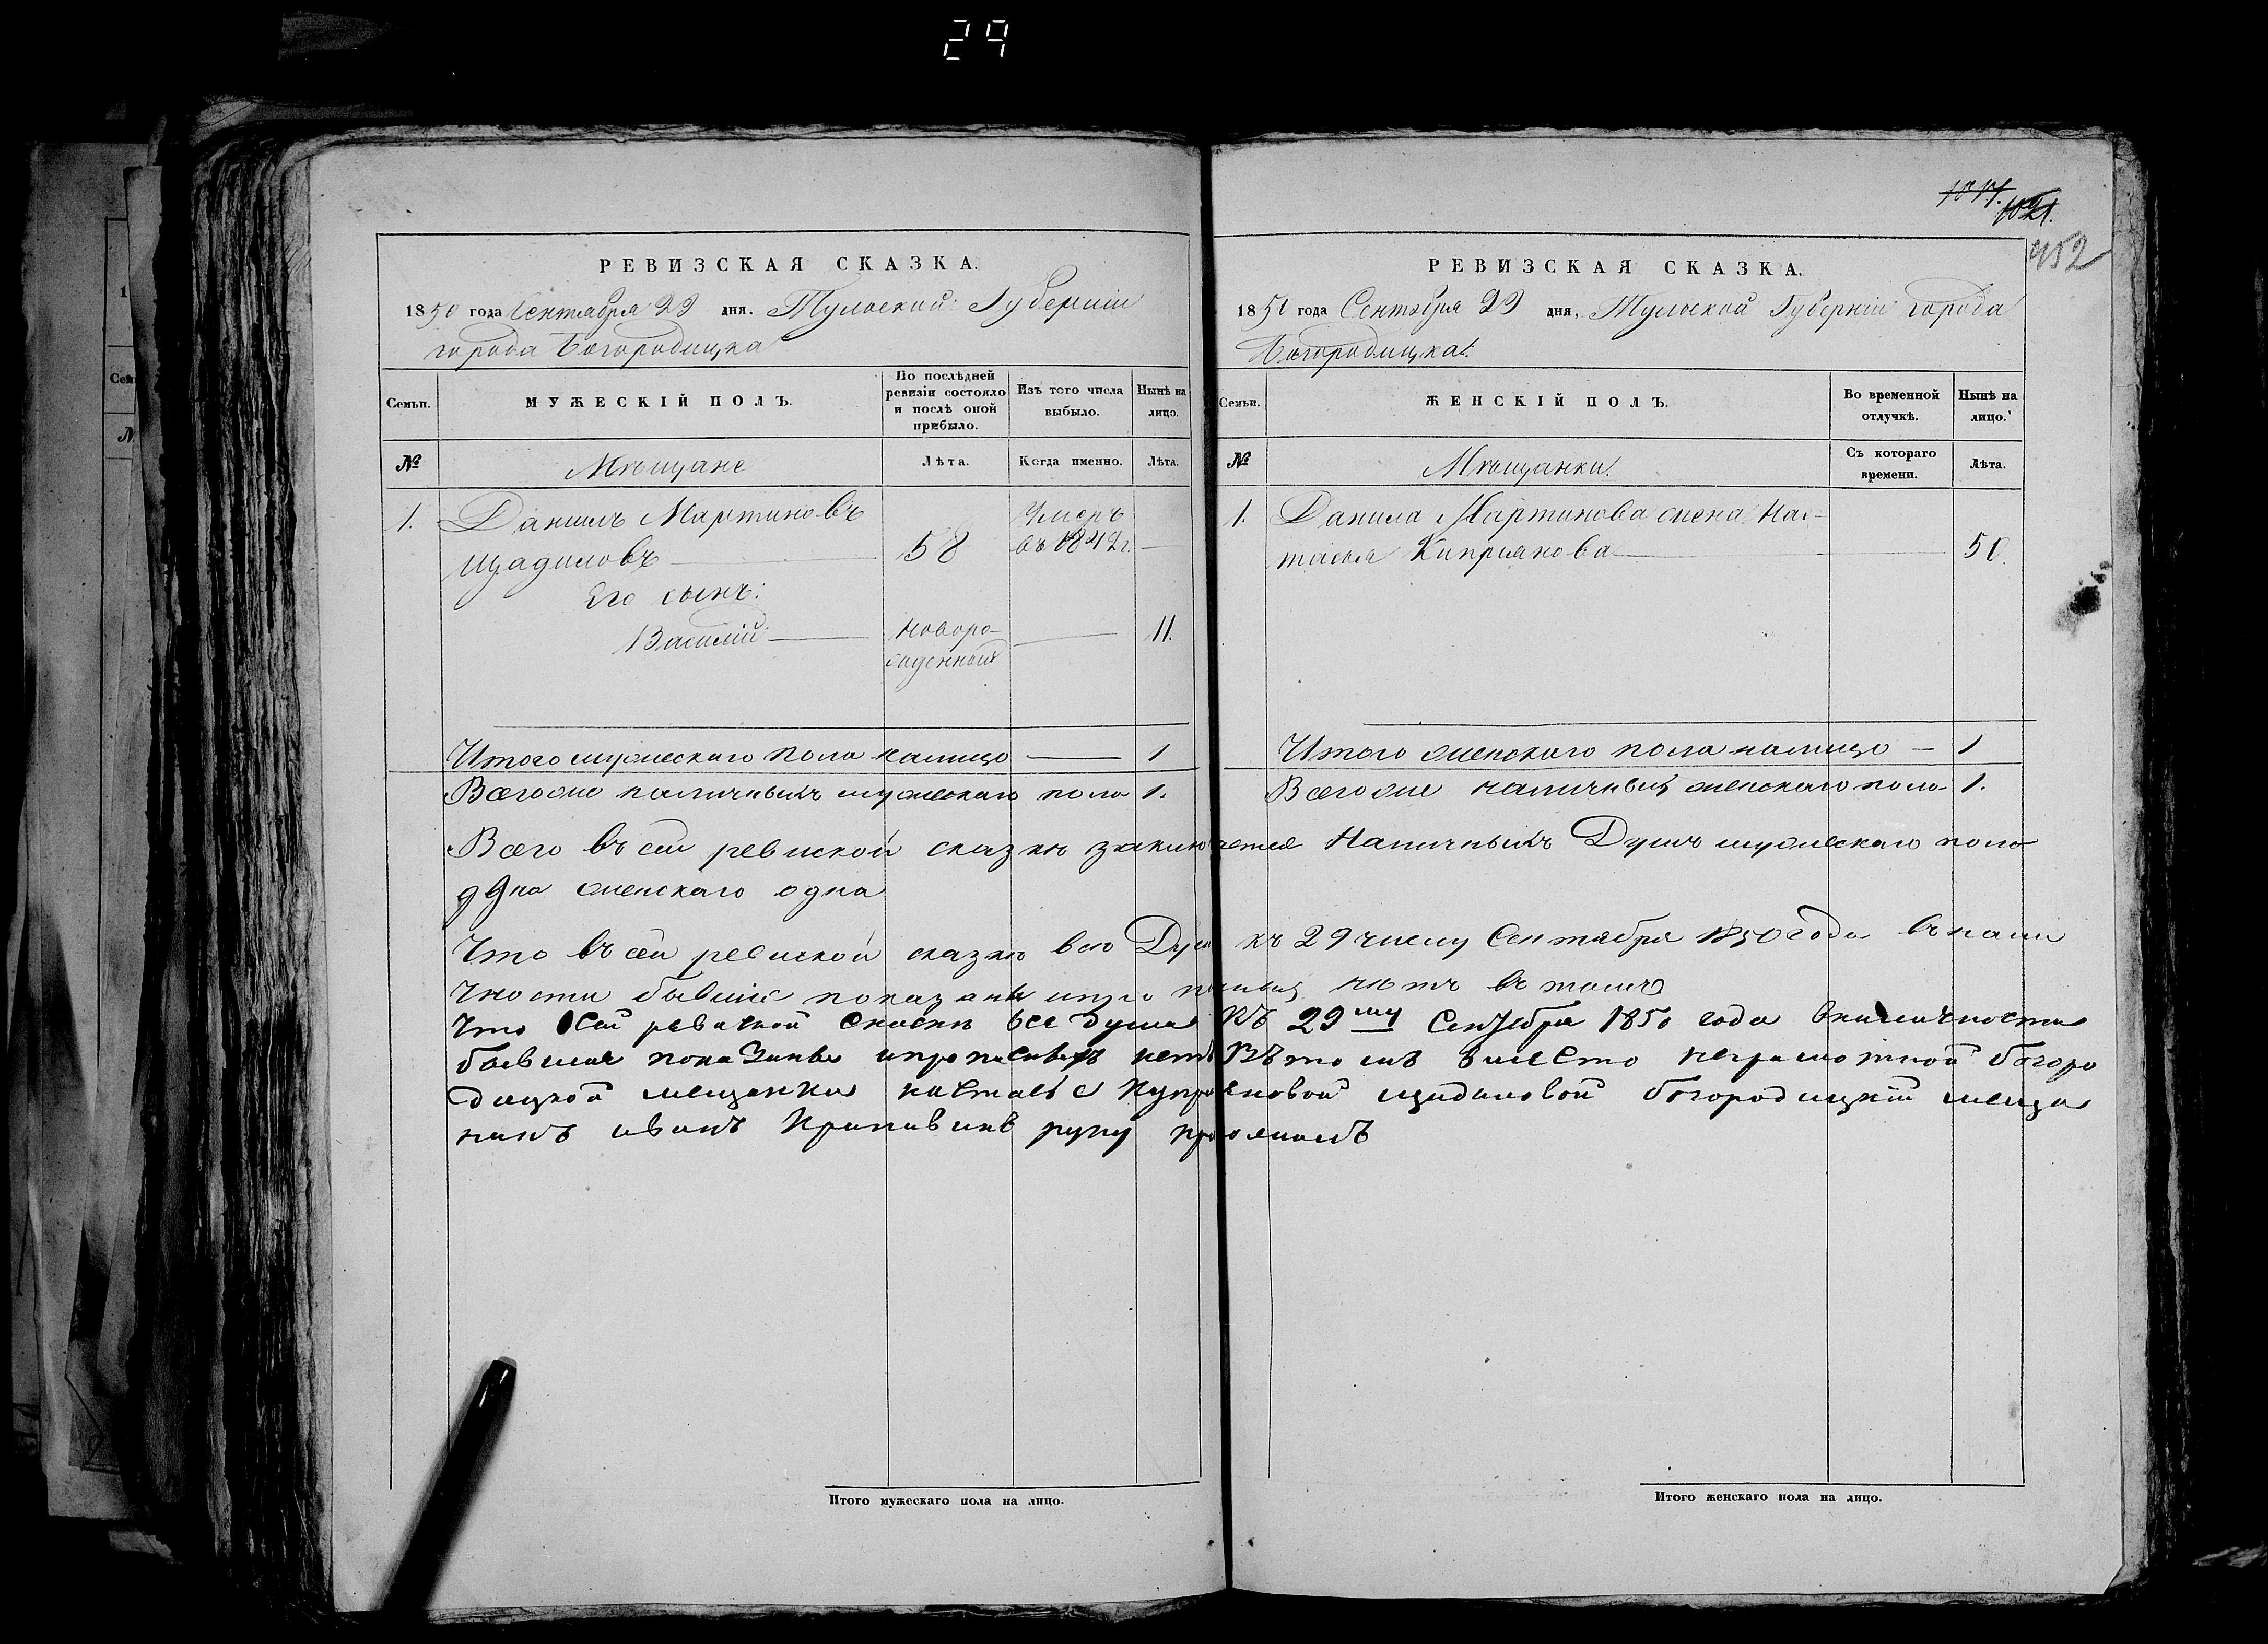 29
РЕВИЗСКАЯ СКАЗКА.
1850 года Сентября 29 дня. Тульской Губернiи
города Богородицка
Семьи.
МУЖЕСКIЙ ПОЛЪ.
По послѣдней
ревизiи состояло
и послѣ оной
прибыло.
Изъ того числа
выбыло.
Нынѣ на
лицо.
№
Мѣщане
Лѣта.
Когда именно.
Лѣта.
1. Данилъ Мартиновъ
Щадиловъ — 58
Умеръ
въ 1842 г. —
Его сынъ:
Василiй — новоро-
жденный — 11.
Итого мужескаго пола налицо — 1
Всего же наличныхъ мужескаго пола 1.
1021.
452
РЕВИЗСКАЯ СКАЗКА.
1850 года Сентября 29 дня, Тульской Губернiи города
Богородицка.
Семьи.
ЖЕНСКIЙ ПОЛЪ.
Во временной
отлучкѣ.
Нынѣ на
лицо.
№
Мѣщанки.
Съ котораго
времени.
Лѣта.
1. Данила Мартинова жена Нас-
тасья Киприянова — 50.
Итого женскаго пола налицо — 1
Всего же наличныхъ женскаго пола 1.
Всего въ сей ревиской сказкѣ заключается Наличныхъ Душъ мужескаго пола
одна женскаго одна
Что въ сей ревиской сказкѣ все Души къ 29 числу Сентября 1850 года въ нали
чности бывшие показаны нѣтъ въ томъ
Что всей ревиской скаскѣ все души Къ 29му Сентебря 1850 года вналичности
бывшие показаны ипрописныхъ нетъ Вътомъ вместо неграмотной богоро
дицкой мещанки настасьи Купрояновой щадиловой богородицкiй меща
нинъ иванъ Крапивинъ руку приложилъ
Итого мужескаго пола на лицо.
Итого женскаго пола на лицо.